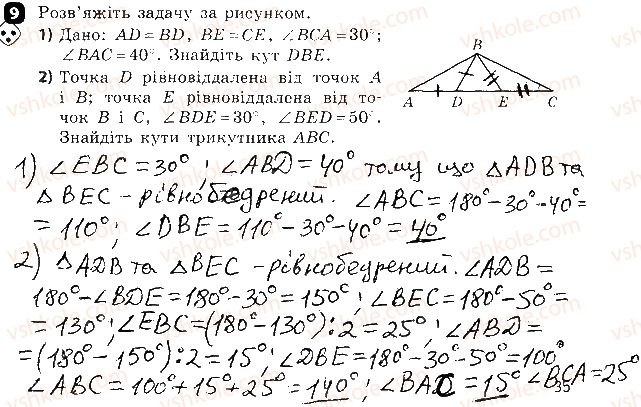 9 Розв'яжіть задачу за рисунком.
1) Дано: AD = BD, BE = CE, ∠BCA = 30°;
∠BAC = 40°. Знайдіть кут DBE.
2) Точка D рівновіддалена від точок A
і B; точка E рівновіддалена від то-
чок B і C, ∠BDE = 30°, ∠BED = 50°.
Знайдіть кути трикутника ABC.
B
A D E C
1) ∠EBC = 30°; ∠ABD = 40° тому що △ADB та
△BEC - рівнобедрений. ∠ABC = 180° - 30° - 40° =
= 110°; ∠DBE = 110° - 30° - 40° = 40°
2) △ADB та △BEC - рівнобедрений. ∠ADB =
180° - ∠BDE = 180° - 30° = 150°; ∠BEC = 180° - 50° =
= 130°; ∠EBC = (180° - 130°) : 2 = 25°; ∠ABD =
= (180° - 150°) : 2 = 15°; ∠DBE = 180° - 30° - 50° = 100°
∠ABC = 100° + 15° + 25° = 140°; ∠BAC = 15° ∠BCA = 25°
35